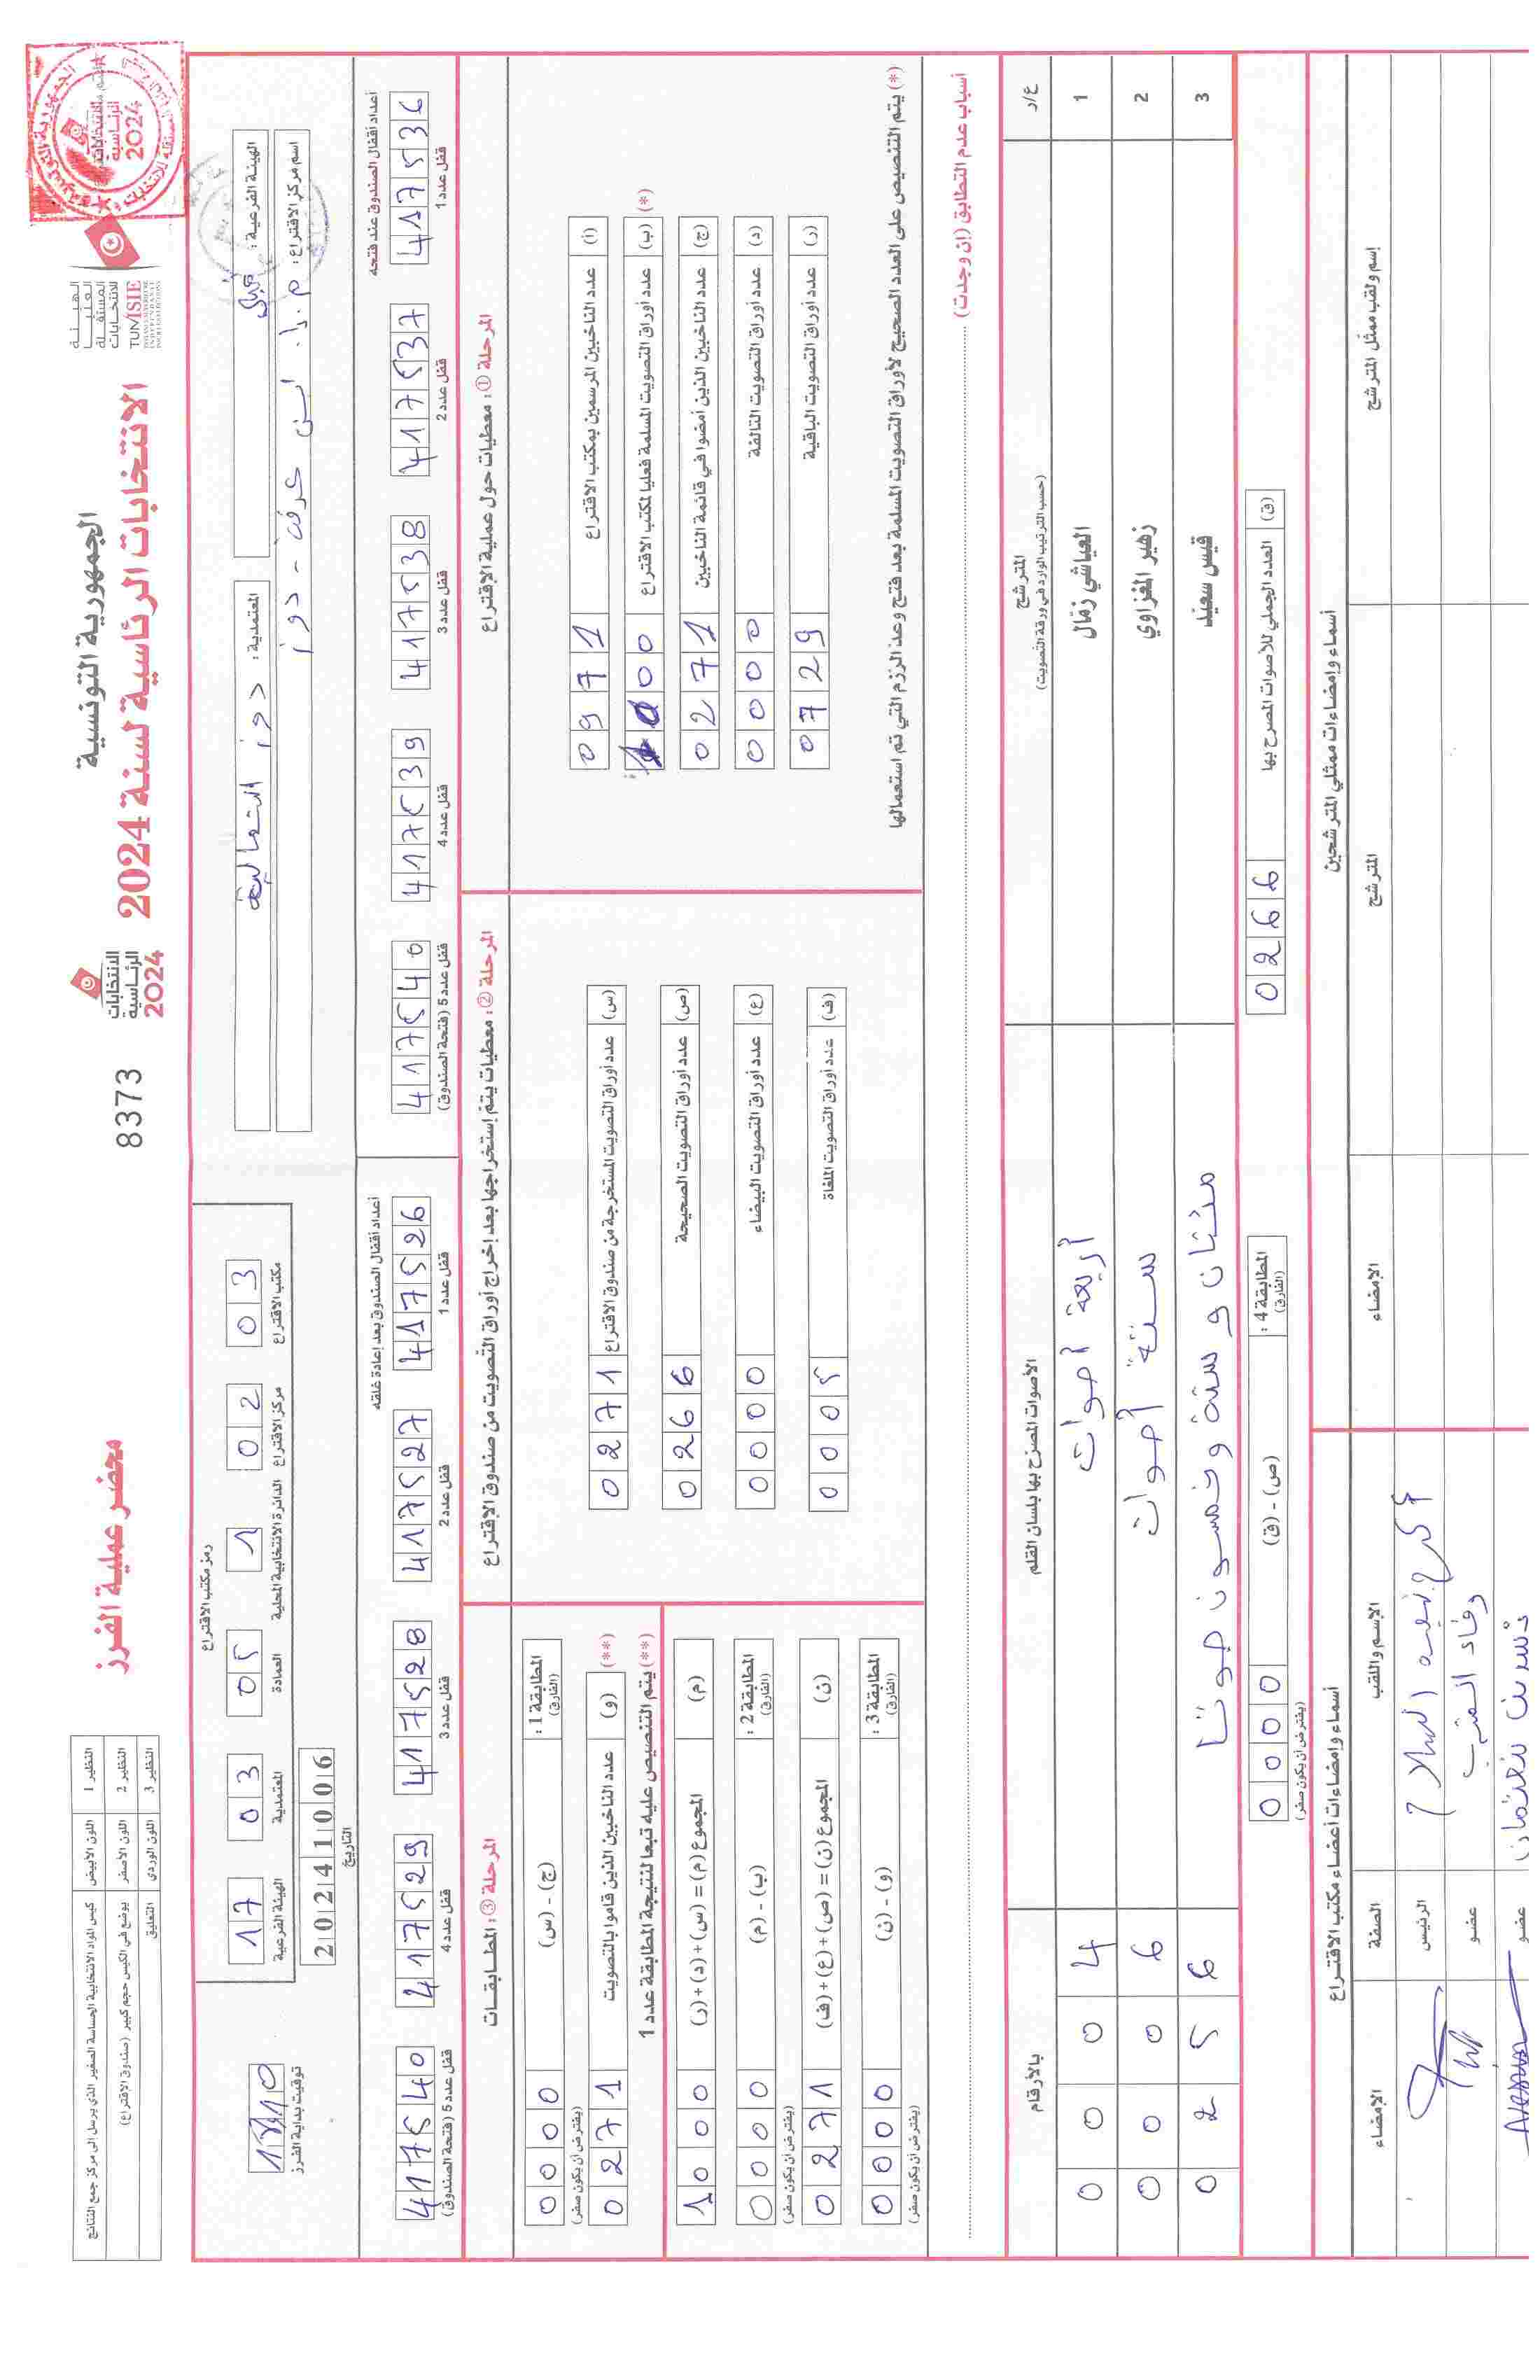 الجمهورية التونسية
الانتخابات الرئاسية لسنة 2024
الهيئة العليا المستقلة للانتخابات
TUNISIE
الانتخابات الرئاسية 2024
8373
محضر عملية الفرز
النظير 1 اللون الأبيض كيس المواد الانتخابية الحساسة الصغير الذي يرسل إلى مركز جمع النتائج
النظير 2 اللون الأصفر يوضع في الكيس حجم كبير (صندوق الاقتراع)
النظير 3 اللون الوردي التعليق
الهيئة الفرعية: قبلي
المعتمدية: دوز الشمالية
اسم مركز الاقتراع: م. إ. ابن عرفة - دوز
رمز مكتب الاقتراع
17 03 05 1 02 03
الهيئة الفرعية المعتمدية العمادة الدائرة الانتخابية المحلية مركز الاقتراع مكتب الاقتراع
20241006
التاريخ
توقيت بداية الفرز
أعداد أقفال الصندوق عند فتحه
417536 417537 417538 417539 417540
قفل عدد 1 قفل عدد 2 قفل عدد 3 قفل عدد 4 قفل عدد 5 (فتحة الصندوق)
أعداد أقفال الصندوق بعد إعادة غلقه
417526 417527 417528 417529 417540
قفل عدد 1 قفل عدد 2 قفل عدد 3 قفل عدد 4 قفل عدد 5 (فتحة الصندوق)
المرحلة ①: معطيات حول عملية الاقتراع
(أ) عدد الناخبين المرسمين بمكتب الاقتراع 0971
(ب) عدد أوراق التصويت المسلمة فعليا لمكتب الاقتراع 1000 (*)
(ج) عدد الناخبين الذين أمضوا في قائمة الناخبين 0271
(د) عدد أوراق التصويت التالفة 0000
(ر) عدد أوراق التصويت الباقية 0729
(*) يتم التنصيص على العدد الصحيح لأوراق التصويت المسلمة بعد فتح وعد الرزم التي تم استعمالها
المرحلة ②: معطيات يتم إستخراجها بعد إخراج أوراق التصويت من صندوق الاقتراع
(س) عدد أوراق التصويت المستخرجة من صندوق الاقتراع 0271
(ص) عدد أوراق التصويت الصحيحة 0266
(ع) عدد أوراق التصويت البيضاء 0000
(ف) عدد أوراق التصويت الملغاة 0005
المرحلة ③: المطابقات
المطابقة 1: (الفارق) (ج) - (س) 0000
(يفترض أن يكون صفر)
(**) (و) عدد الناخبين الذين قاموا بالتصويت 0271
(**) يتم التنصيص عليه تبعا لنتيجة المطابقة عدد 1
(م) المجموع (م) = (س) + (د) + (ر) 1000
المطابقة 2: (الفارق) (ب) - (م) 0000
(يفترض أن يكون صفر)
(ن) المجموع (ن) = (ص) + (ع) + (ف) 0271
المطابقة 3: (الفارق) (و) - (ن) 0000
(يفترض أن يكون صفر)
أسباب عدم التطابق (إن وجدت)
ع/د المترشح (حسب الترتيب الوارد في ورقة التصويت) الأصوات المصرح بها بلسان القلم بالأرقام
1 العياشي زمال أربعة أصوات 0004
2 زهير المغزاوي ستة أصوات 0006
3 قيس سعيد مئتان و ستة وخمسون صوتا 0256
(ق) العدد الجملي للأصوات المصرح بها 0266
المطابقة 4: (الفارق) (ص) - (ق) 0000
(يفترض أن يكون صفر)
أسماء وإمضاءات ممثلي المترشحين
إسم ولقب ممثل المترشح المترشح الإمضاء
أسماء وإمضاءات أعضاء مكتب الاقتراع
الإسم واللقب الصفة الإمضاء
الرئيس
عضو
عضو